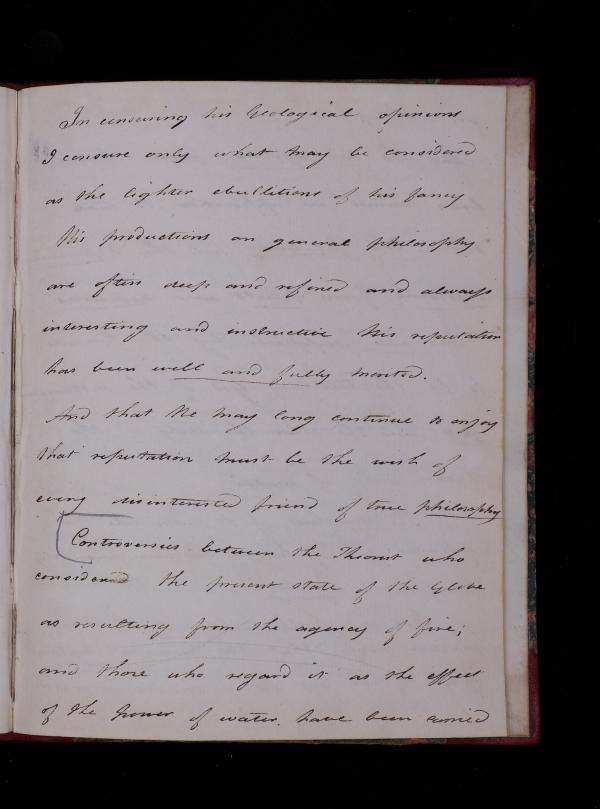 In censuring his Geological opinions
I censure only what may be considered
as the lighter ebullitions of his fancy
His productions on general philosophy
are often deep and refined and always
interesting and instructive His reputation
has been well and fully merited.
And that He may long continue to enjoy
that reputation must be the wish of
every disinterested friend of true philosophy
Controversies between the Theorist who
considered the present state of the Globe
as resulting from the agency of fire;
and those who regard it as the effect
of the power of water. have been carried